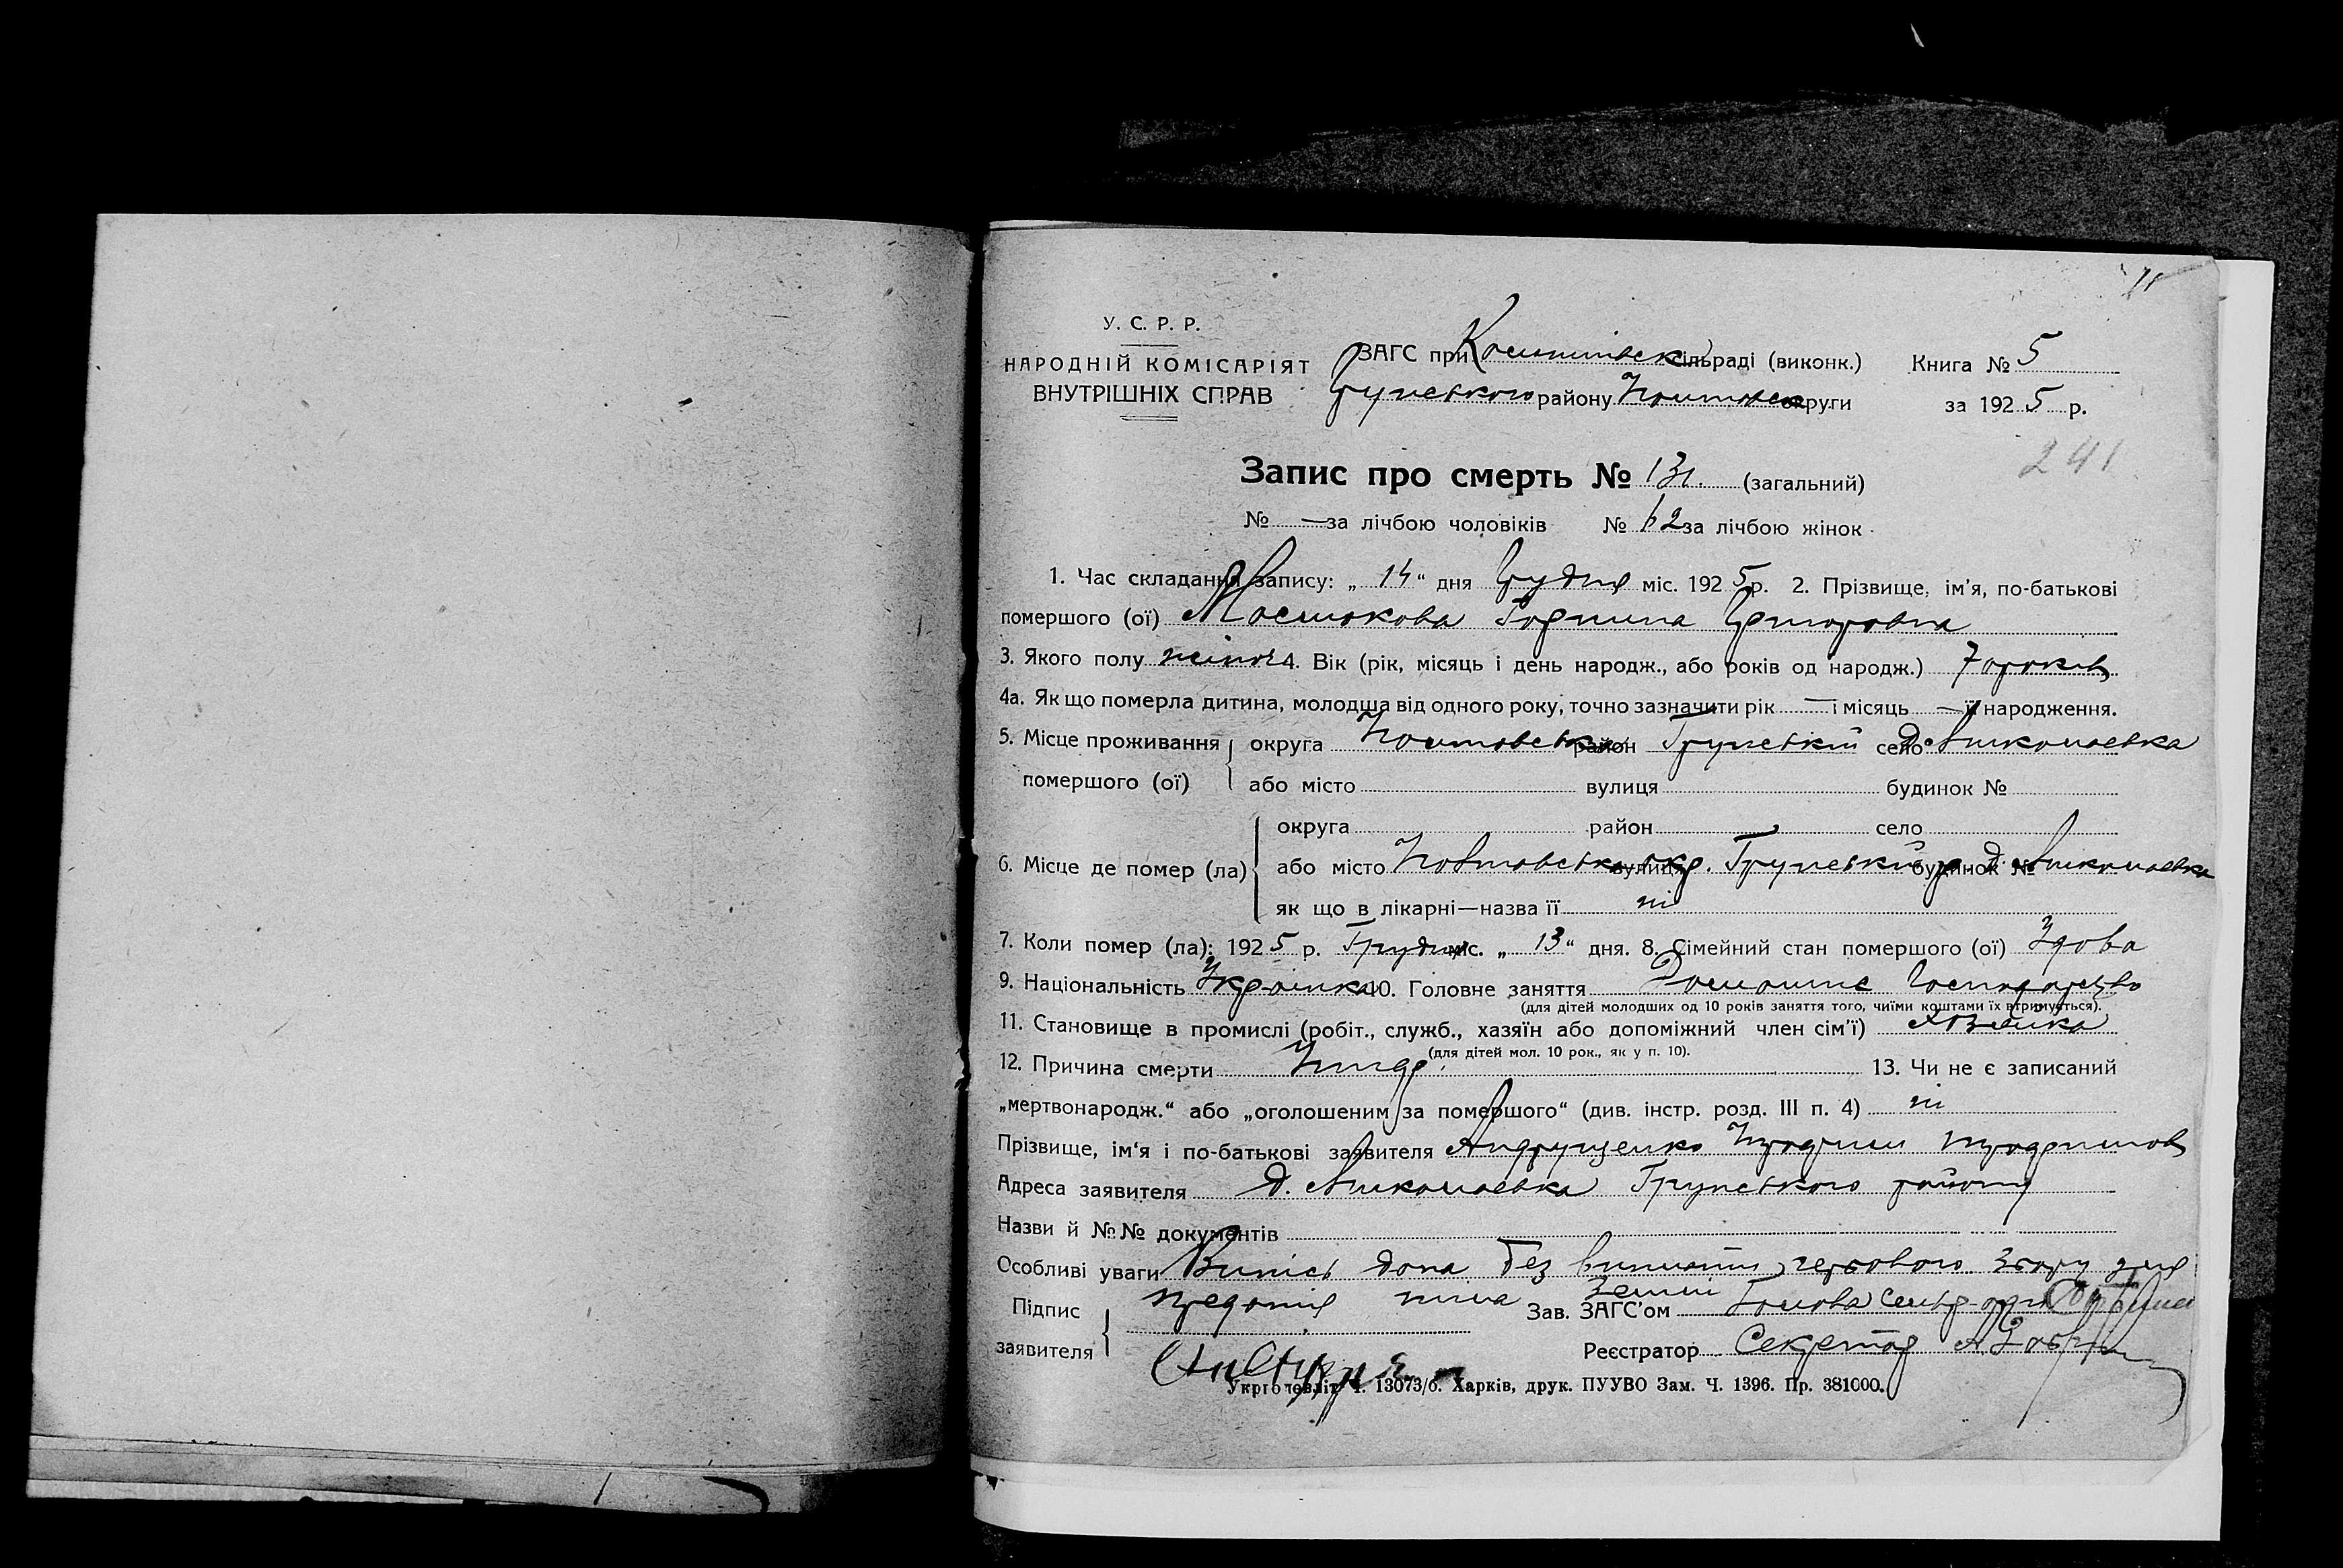 У. С. Р. Р.
НАРОДНІЙ КОМІСАРІЯТ
ВНУТРІШНІХ СПРАВ
ЗАГС при сільраді (виконк.)
Грунського району Полтавськ округи
Книга № 5
за 1925 р.
241
Запис про смерть № 131. (загальний)
№ — за лічбою чоловіків № 62 за лічбою жінок
1. Час складання запису: „ 14 “ дня Грудня міс. 1925 р. 2. Прізвище, ім'я, по-батькові
помершого (ої) Григоровна
3. Якого полу жіноч 4. Вік (рік, місяць і день народж., або років од народж.) 70 років
4а. Як що померла дитина, молодша від одного року, точно зазначити рік — і місяць — її народження.
5. Місце проживання округа Полтавська район Грунський село д. Николаевка
помершого (ої) або місто вулиця будинок №
округа район село
6. Місце де помер (ла) або місто Полтавська окр. вулиця Грунський р. будинок № д. Николаевка
як що в лікарні—назва її ні
7. Коли помер (ла): 1925 р. Грудня міс. „ 13 “ дня. 8. Сімейний стан помершого (ої) Здова
9. Національність Українка 10. Головне заняття Домашнє Господарство
(для дітей молодших од 10 років заняття того, чиїми коштами їх втримується).
11. Становище в промислі (робіт., служб., хазяїн або допоміжний член сім'ї) Хозяйка
(для дітей мол. 10 рок., як у п. 10).
12. Причина смерти 13. Чи не є записаний
„мертвонародж.“ або „оголошеним за помершого“ (див. інстр. розд. III п. 4) ні
Прізвище, ім'я і по-батькові заявителя Андрущенко
Адреса заявителя д. Николаевка Грунського району
Назви й №№ документів
Особливі уваги Випись дана без виплати гербового збору для
Підпис Зав. ЗАГС'ом Голова
заявителя Реєстратор Секретар
Укрголовліт Ч. 13073/б. Харків, друк. ПУУВО Зам. Ч. 1396. Пр. 381000.